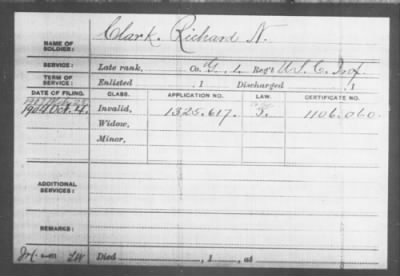 NAME OF SOLDIER: Clark, Richard N.
SERVICE: Late rank, Co. G. 1. Reg't U.S.C. Inf.
TERM OF SERVICE: Enlisted , 1 Discharged , 1
DATE OF FILING. CLASS. APPLICATION NO. LAW. CERTIFICATE NO.
1904 Oct. 4. Invalid, 1325.617. 1106.060.
Widow,
Minor,
ADDITIONAL SERVICES:
REMARKS:
Died , 1 , at